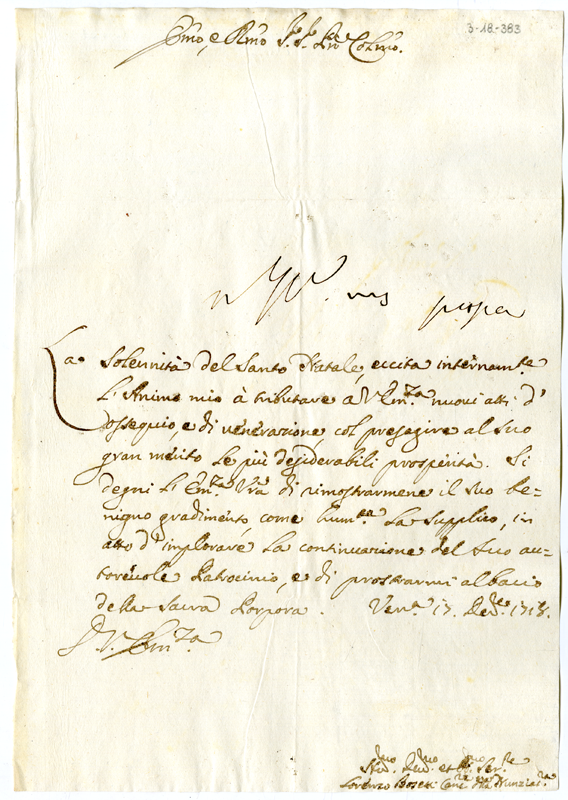 3-18-383
Emo, e Rmo Sr. Sr. Pne Colmo.
La Solennità del Santo Natale, eccita internamte
l'Animo mio à tributare à V. Emza nuovi atti d'
ossequio, e di venerazione, col presagire al suo
gran merito le più desiderabili prosperità. Si
degni l'Emza Vra di rimostrarmene il suo be=
nigno gradimento, come humte la supplico, in
atto d'implorare la continuazione del suo au=
torevole Patrocinio, e di prostrarmi al bacio
della Sacra Porpora. Vena 17. Xbre 1718.
D. V. Emza
Lorenzo